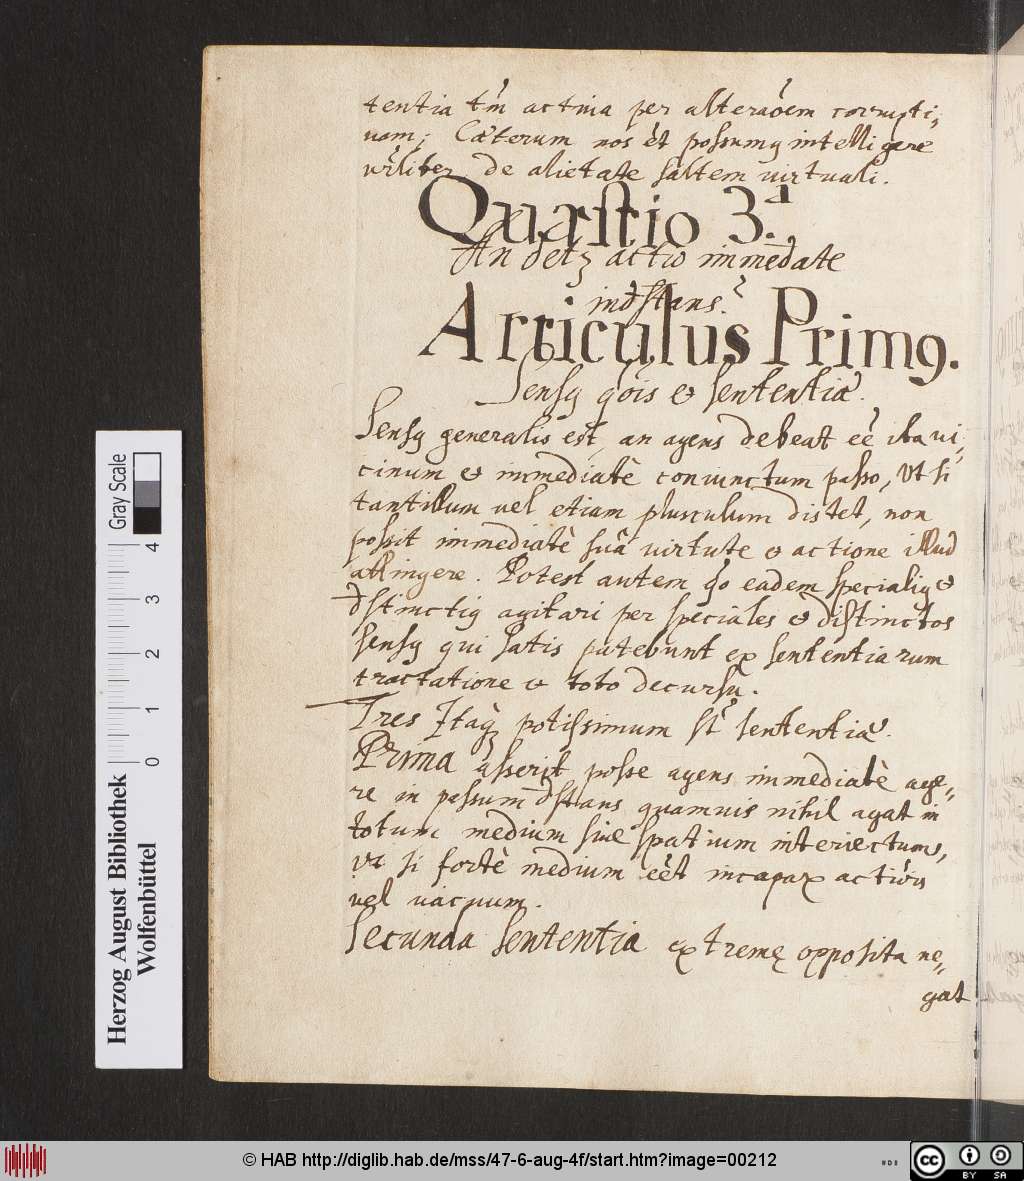 tentia tm̄ actiua per alteraōem corrupti-
uam; Cæterum nos ēt possumꝯ intelligere
vr̄liter de alietate saltem virtuali.
Quæstio 3.ª
An detꝛ actio immēdate
indstans?
Articulus Primꝯ.
Sensꝯ qōis & sententiæ.
Sensꝯ generalis est, an agens debeat eē ita vi-
cinum & immediatè coniunctum passo, vt si
tantillum vel etiam plusculum distet, non
possit immediatè suâ virtute & actione illud
attingere. Potest autem qō eadem specialiꝯ &
dstinctiꝯ agitari per speciales & distinctos
sensꝯ qui satis patebunt ex sententiarum
tractatione & toto decursu.
Tres Itaqꝫ potissimum st̄ sententiæ.
Prima asserit posse agens immediatè age-
re in passum dstans quamuis nihil agat in
totum medium siue spatium interiectum,
vt si fortè medium eēt incapax actiōis
vel vacuum.
Secunda Sententia extremę opposita ne-
gat
Herzog August Bibliothek
Wolfenbüttel
Gray Scale
0 1 2 3 4
© HAB http://diglib.hab.de/mss/47-6-aug-4f/start.htm?image=00212
BY SA